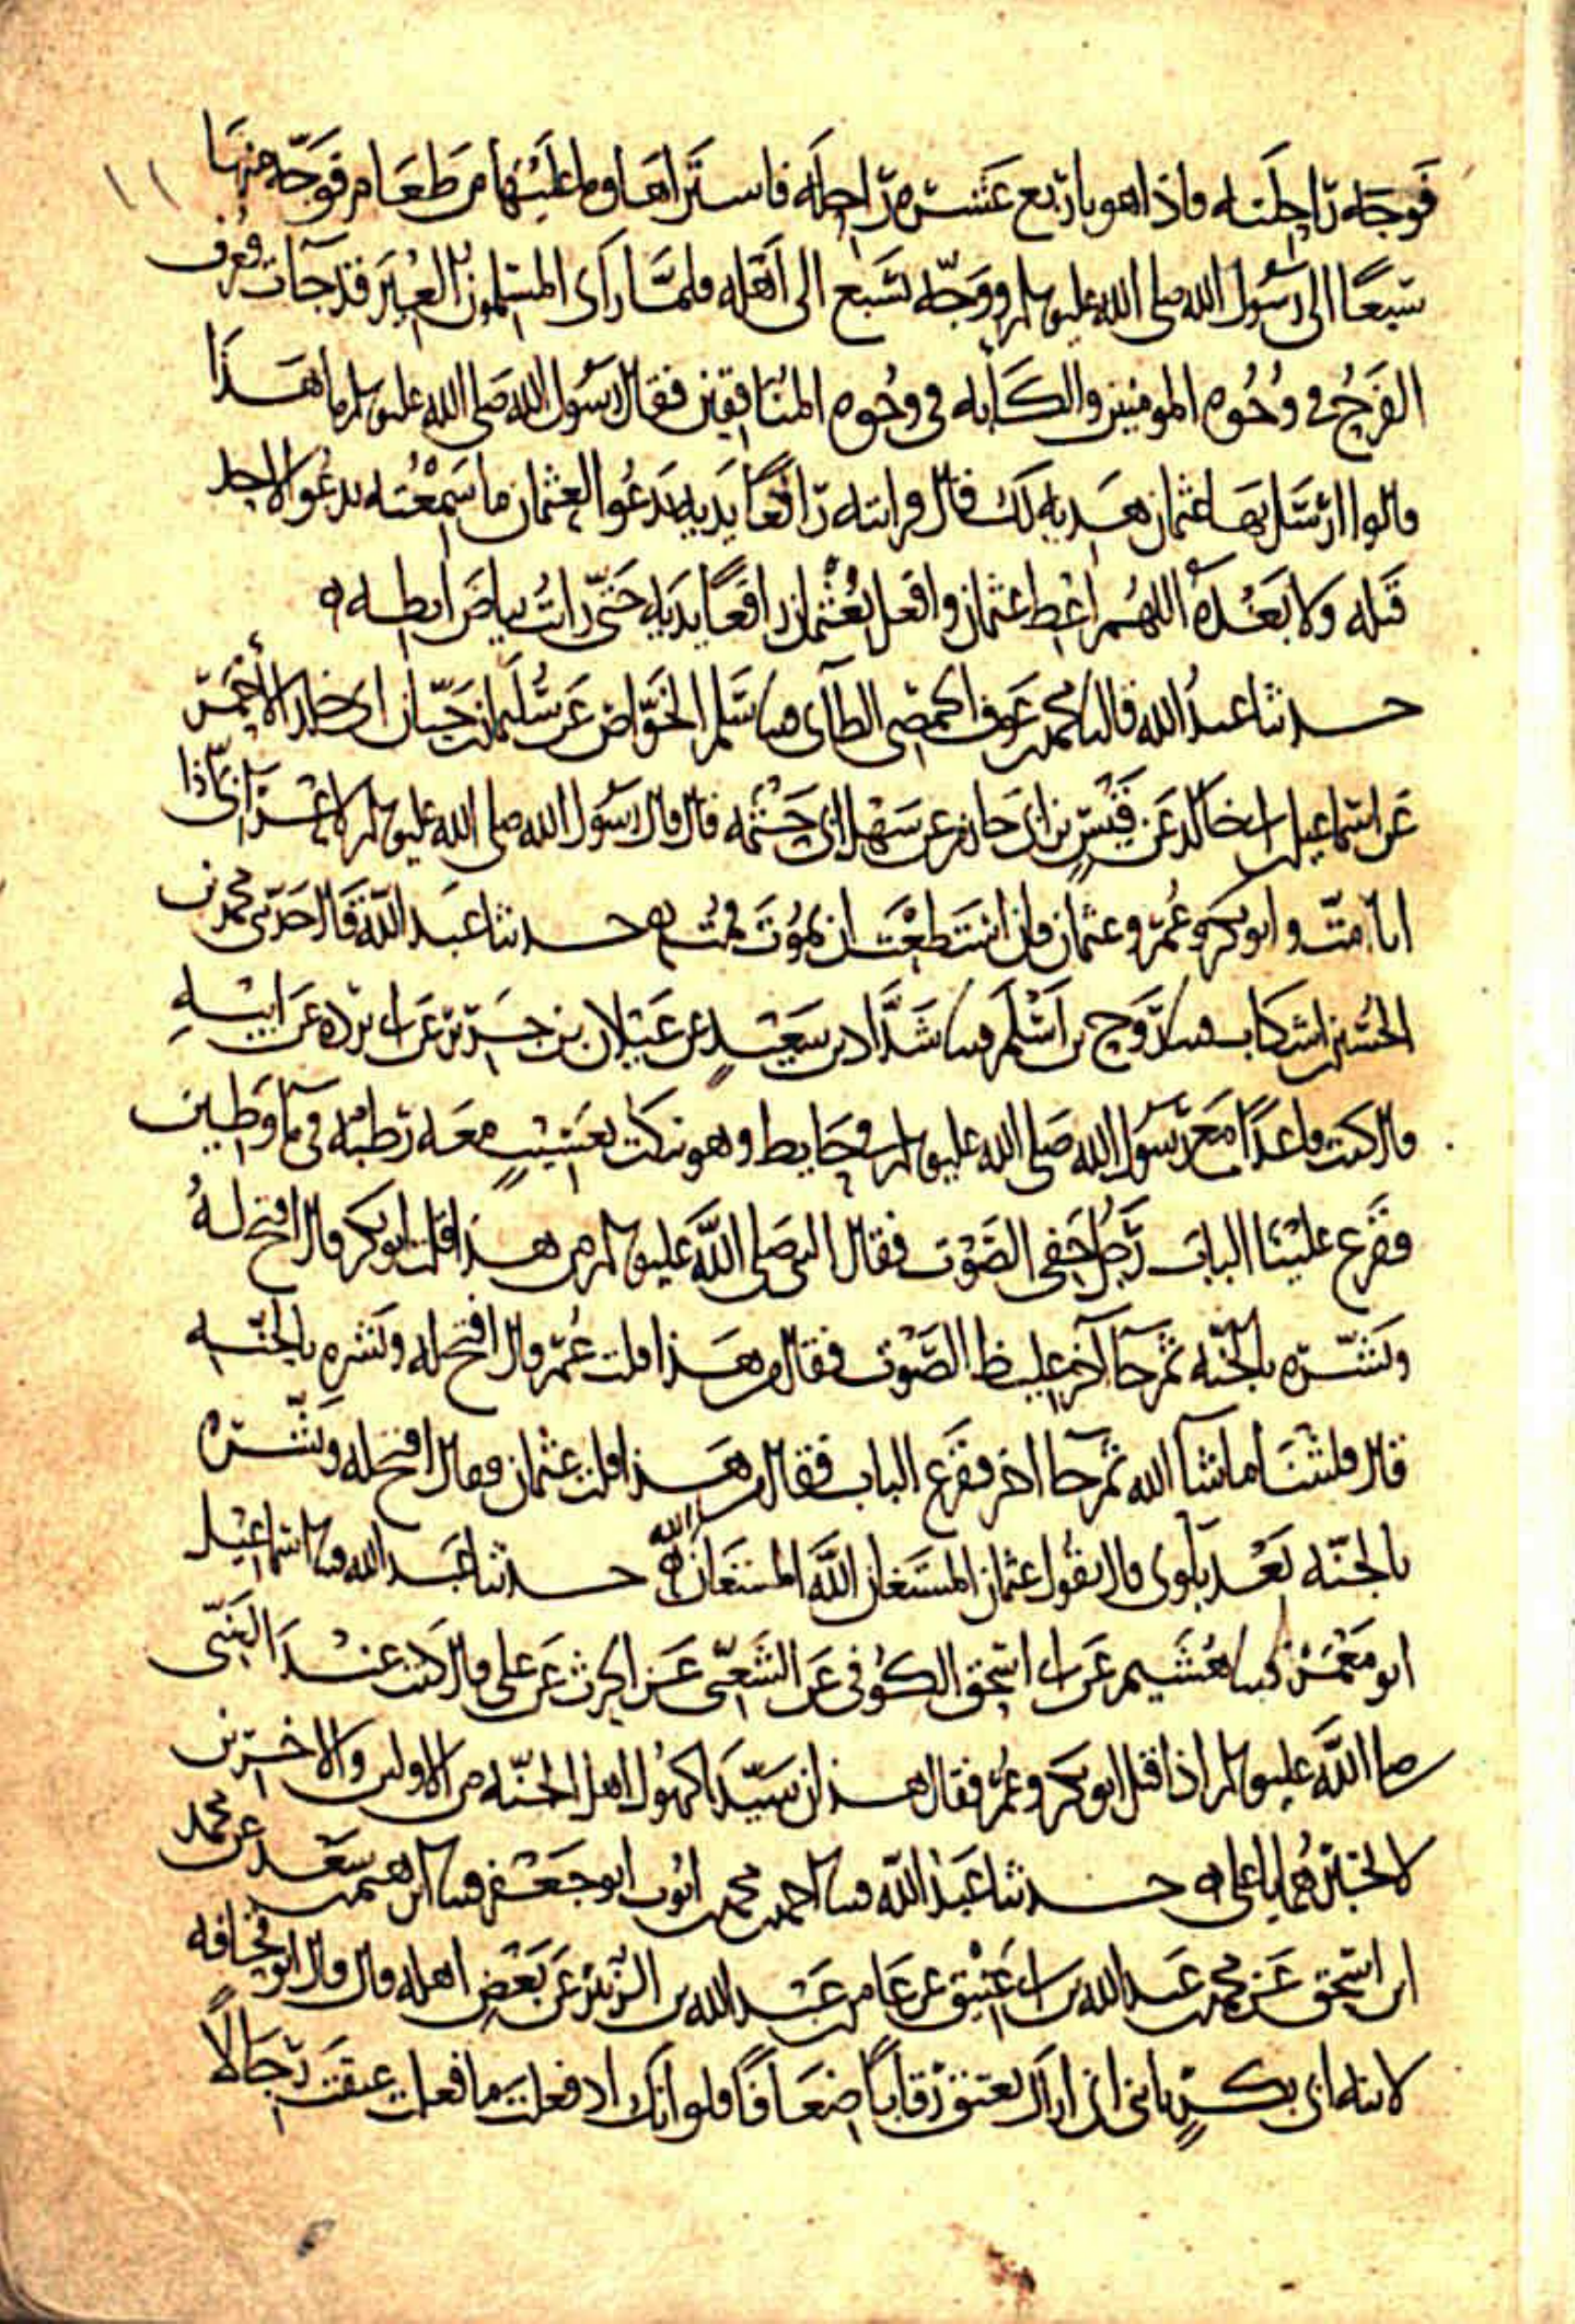 فوجه راحلته فاذا هو باربع عشرة راحله فاشتراها وما عليها من طعام فوجه منها
سبعًا الى رسول الله صلى الله عليه وسلم ووجه بسبع الى اهله فلما راى المسلمون العير قد جآت عرف
الفرح في وجوه المومنين والكآبه في وجوه المنافقين فقال رسول الله صلى الله عليه وسلم ما هذا
قالوا ارسل بها عثمان هديه لك قال فرايته رافعًا يديه يدعو لعثمان ما سمعته يدعو لاحد
قبله ولا بعده اللهم اعط عثمان وافعل بعثمان رافعًا يديه حتى رايت بياض ابطيه ه
حدثنا عبد الله قال محمد بن عوف الحمصي الطآي سلم الخواص عن سليمن بن حيان ابي خالد الأحمر
عن اسماعيل بن ابي خالد عن قيس بن ابي حازم عن سهل بن ابي حثمه قال قال رسول الله صلى الله عليه وسلم اذا
انا مت وابو بكر وعمر وعثمان فان استطعت ان تموت فمت ه حدثنا عبد الله قال حدثني محمد بن
الحسين بن اشكاب روح بن اسلم شداد بن سعيد عن غيلان بن جرير عن ابي برده عن ابيه
قال كنت قاعدًا مع رسول الله صلى الله عليه وسلم في حايط وهو ينكت بعسيب معه رطبه في مآ وطين
فقرع علينا الباب رجل خفي الصوت فقال النبي صلى الله عليه وسلم من هذا قلت ابو بكر قال افتح له
وبشره بالجنه ثم جآ آخر غليظ الصوت فقال من هذا قلت عمر قال افتح له وبشره بالجنه
قال فلبثنا ما شآ الله ثم جا اخر فقرع الباب فقال من هذا قلت عثمان فقال افتح له وبشره
بالجنه بعد بلوى قال يقول عثمان المستعان اللَّه المستعان اللَّه ه حدثنا عبد الله اسماعيل
ابو معمر هشيم عن ابي اسحق الكوفي عن الشعبي عن الحرث عن علي قال كنت عند النبي
صلى اللَّه عليه وسلم اذ اقبل ابو بكر وعمر فقال هذان سيدا كهول اهل الجنه من الاولين والاخرين
لا تخبرهما يا علي ه حدثنا عبد اللَّه احمد بن محمد بن ايوب ابو جعفر ابرهيم بن سعد عن محمد
ابن اسحق عن محمد بن عبد الله بن ابي عتيق عن عامر بن عبد الله بن الزبير عن بعض اهله قال قال ابو قحافه
لابنه ابي بكر يا بني اني اراك تعتق رقابًا ضعافًا فلو انك اذ فعلت ما فعلت عتقت رجالًا